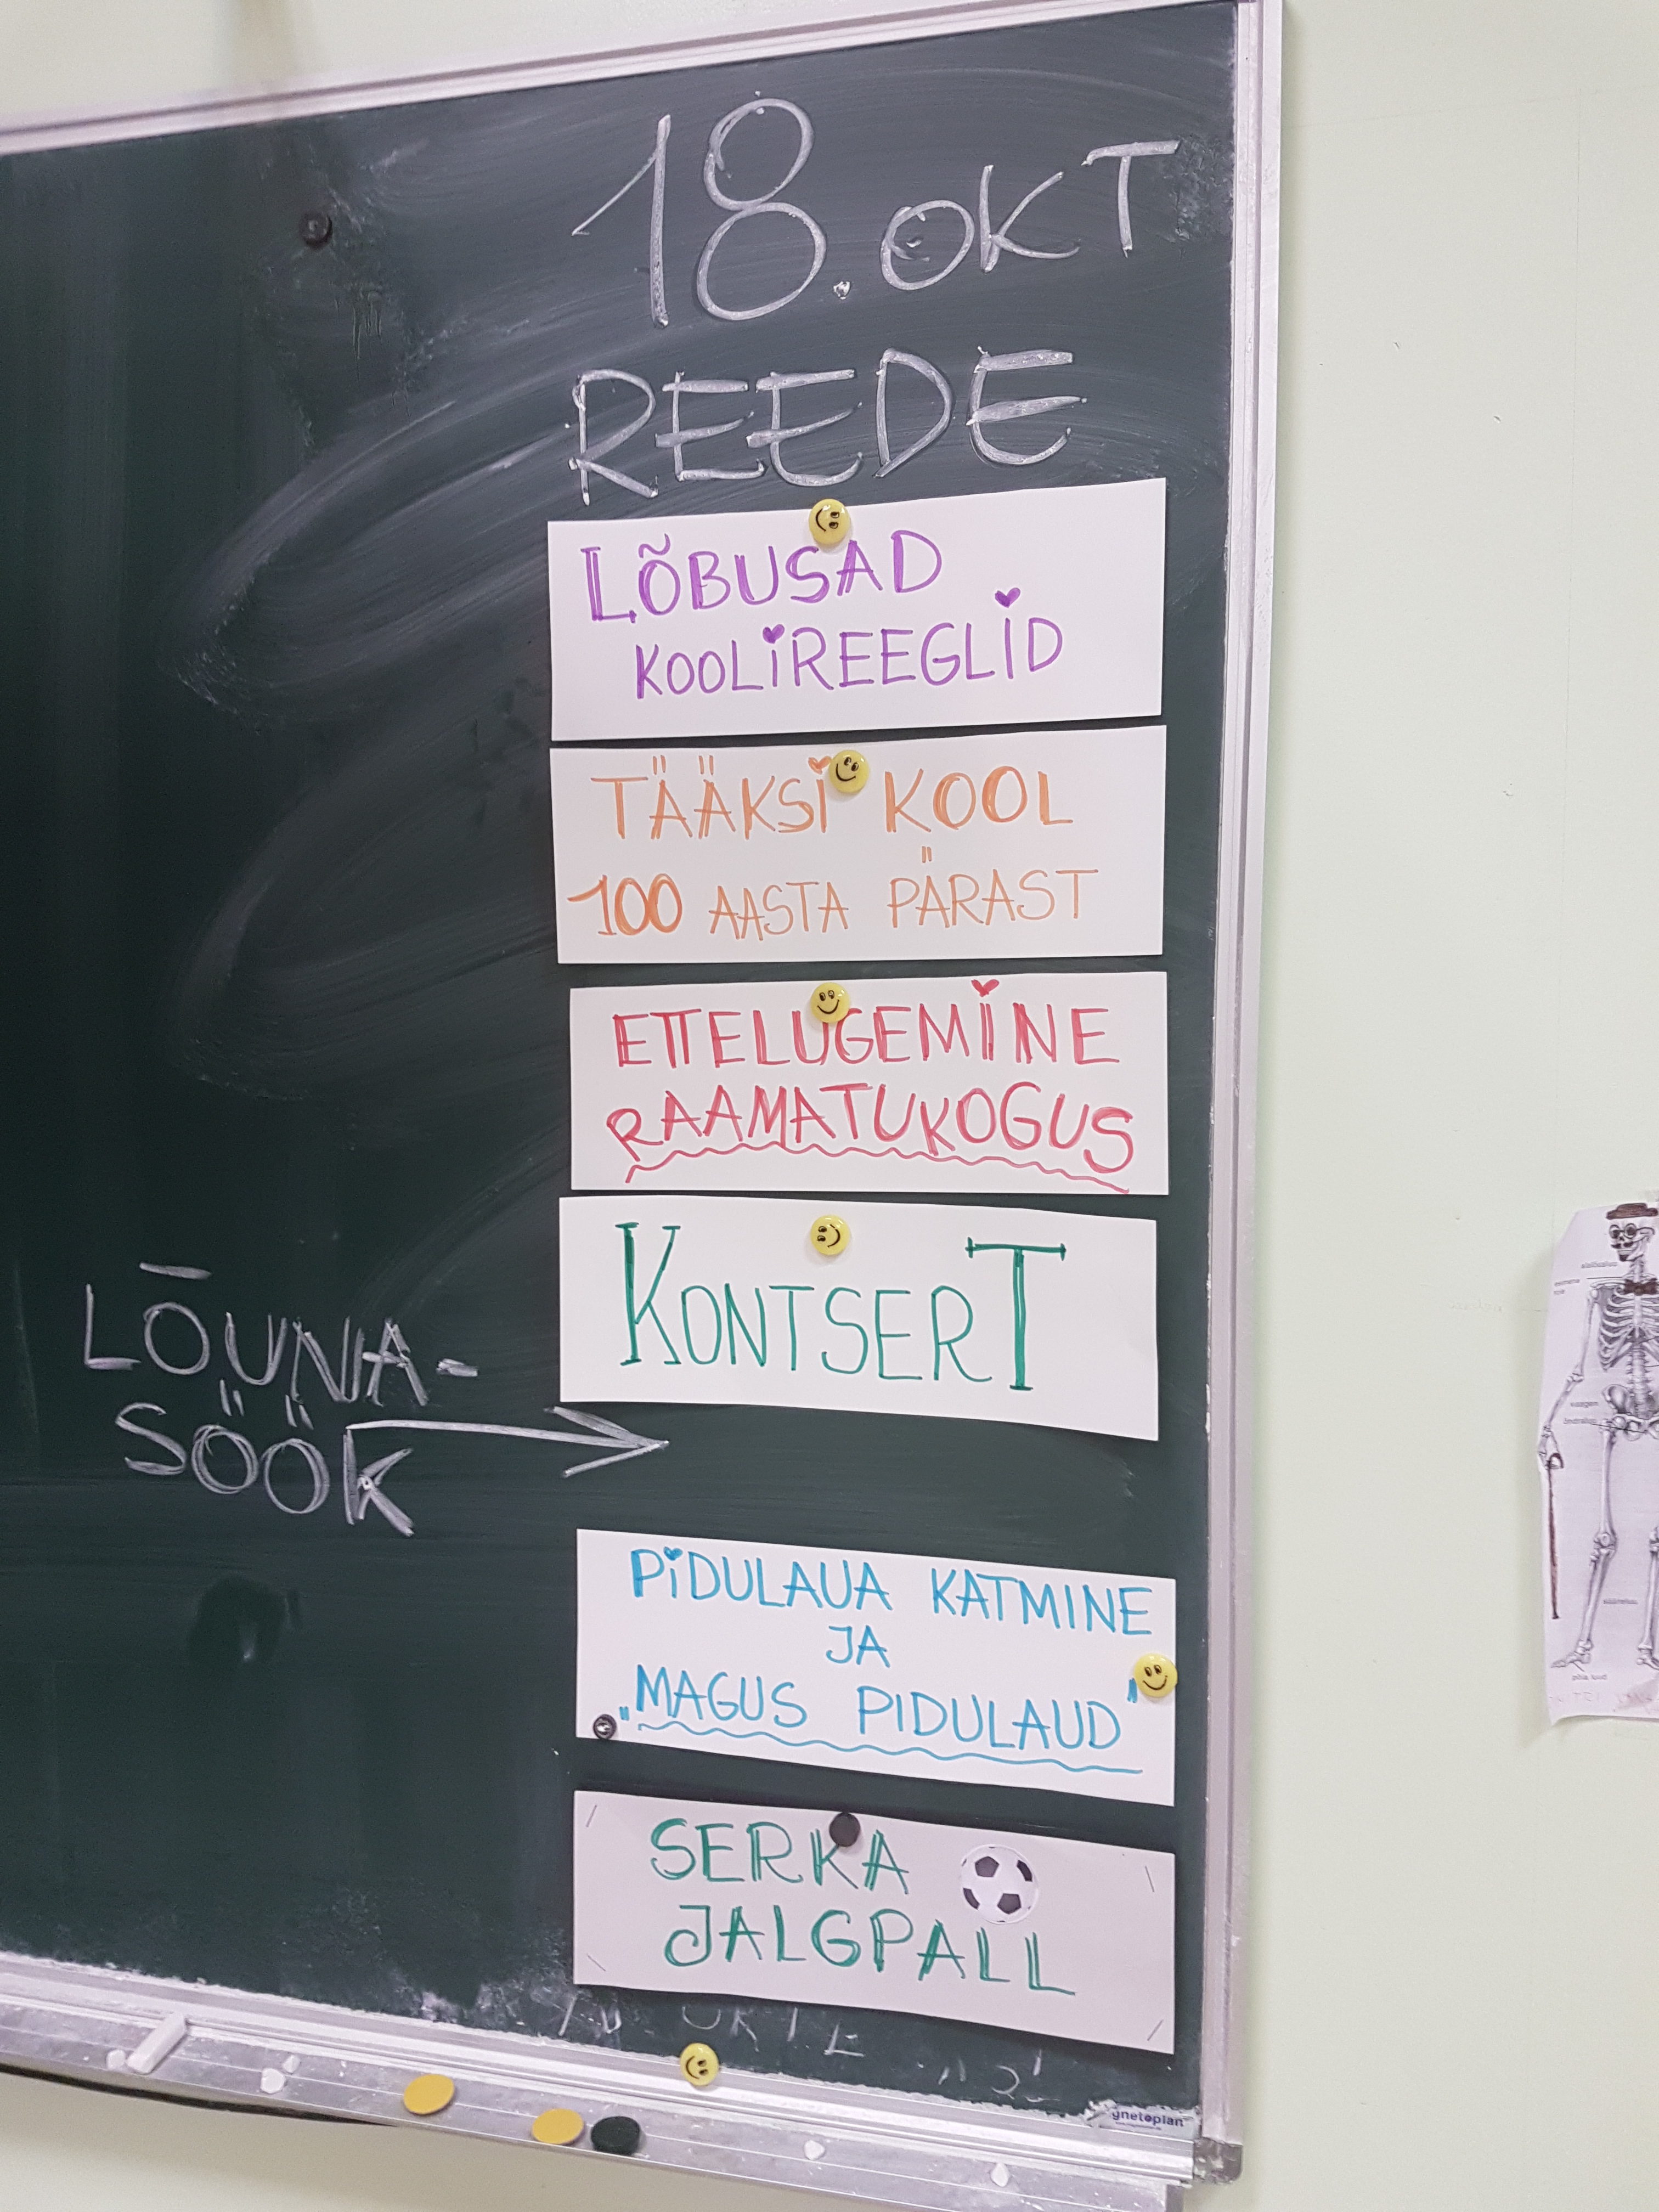 18. OKT
REEDE
LÕBUSAD
KOOLIREEGLID
TÄÄKSI KOOL
100 AASTA PÄRAST
ETTELUGEMINE
RAAMATUKOGUS
KONTSERT
LÕUNA-
SÖÖK
PIDULAUA KATMINE
JA
"MAGUS PIDULAUD"
SERKA
JALGPALL
gnetoplan